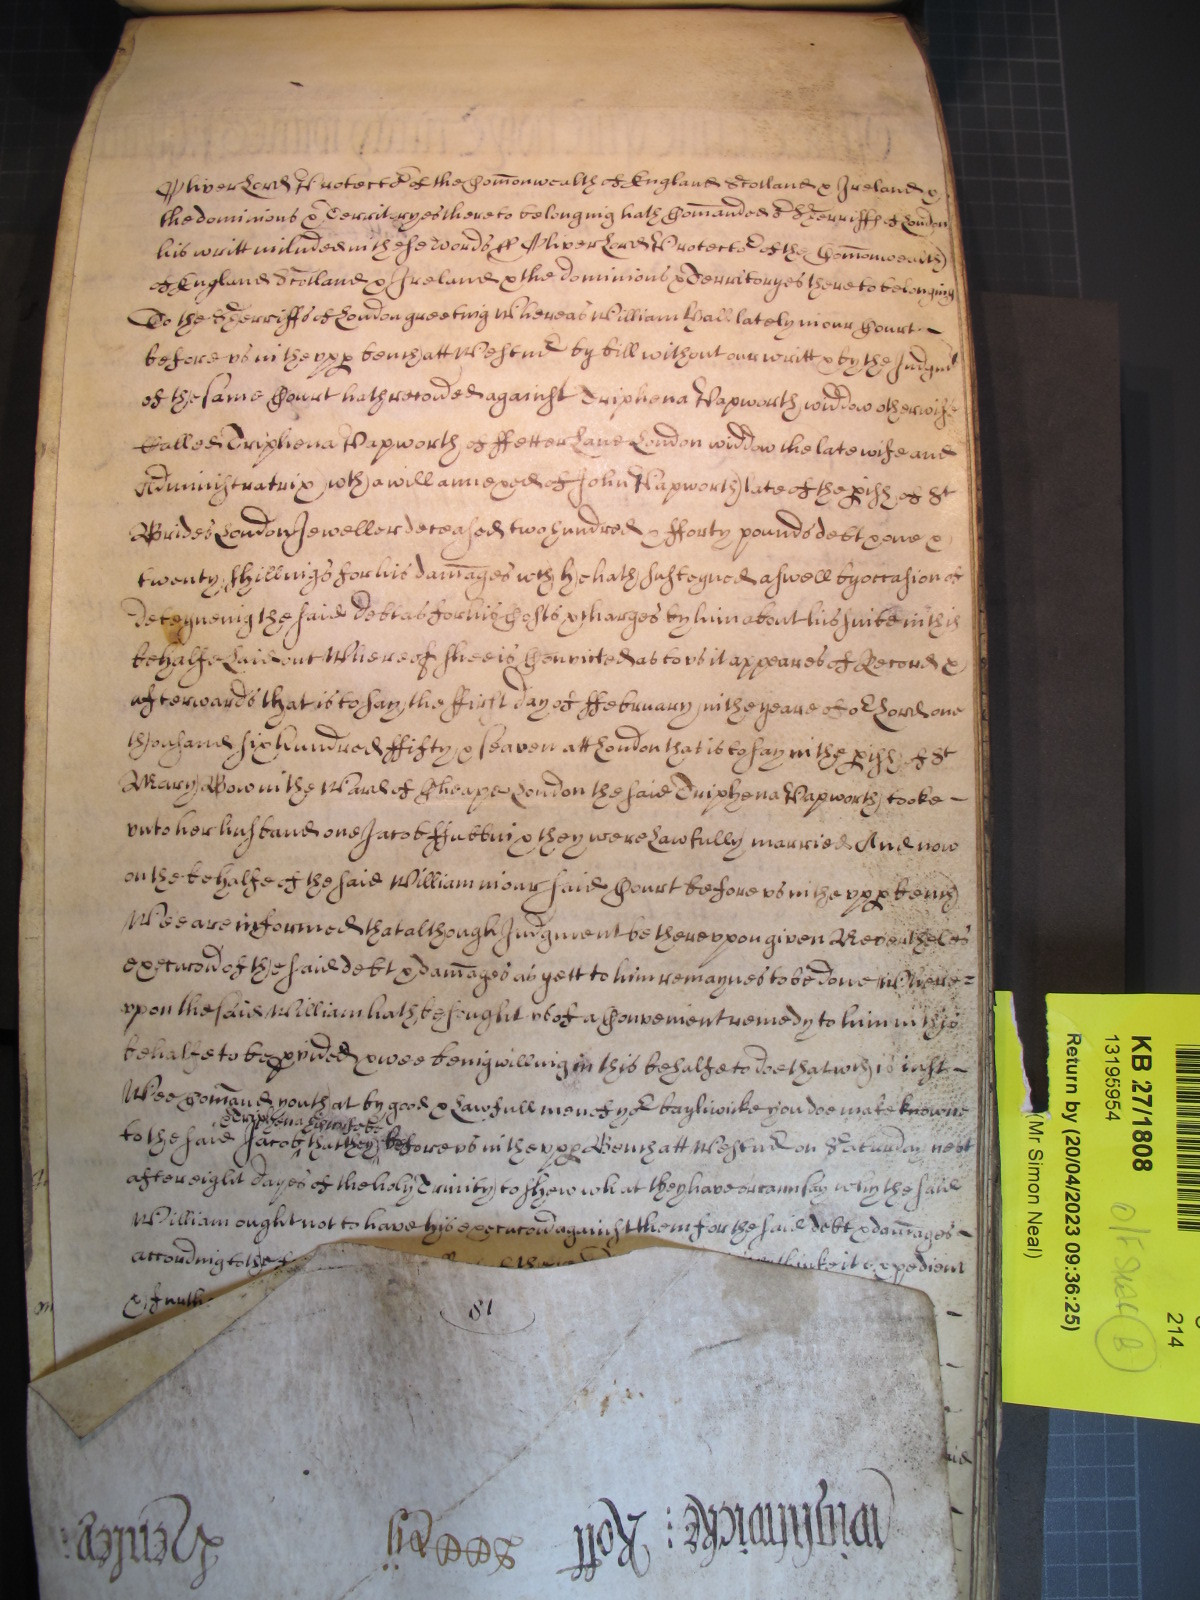 Oliver Lord Protector of the Comonwealth of England Scotland & Ireland &
the dominions & Territoryes thereto belonging hath Comanded Sherriffs of London
his writt included in these words ss Oliver Lord Protector of the Comonwealth
of England Scotland & Ireland & the dominions & Territoryes thereto belonging
To the Sherriffs of London greeting Whereas William Hall lately in our Court
before us in the upp bench att Westmr by bill without our writt & by the Judgmt
of the same Court hath recovered against Triphena Papworth widdow otherwise
called Triphena Papworth of ffetter Lane London widdow the late wife and
Administratrix wth a will annexed of John Papworth late of the pish of St
Brides London Jeweller deceased two hundred & fforty pounds debt & one &
twenty shillings for his damages wch he hath susteyned aswell by occasion of
deteyneing the said debt as for his Costs & charges by him about his suite in this
behalfe Laid out Whereof shee is Convicted as to us it appeares of Record &
afterwards that is to say the ffirst day of ffebruary in the yeare of or Lord one
thousand six hundred ffifty & seaven att London that is to say in the pish of St
Mary Bow in the Ward of Cheape London the said Triphena Papworth tooke
unto her husband one Jacob & they were Lawfully married And now
on the behalfe of the said William in our said Court before us in the upp bench
Wee are informed that although Judgment be thereupon given Neverthelesse
execucion of the said debt & damages as yett to him remaynes to be done Where=
upon the said William hath besought us of a Convenient remedy to him in this
behalfe to be pvided & wee being willing in this behalfe to doe that wch is iust
Wee Comand you that by good & Lawfull men of yor bayliwike you doe make knowne
& Triphena his wife
to the said Jacob that they before us in the upp Bench att Westmr on Saturday next
after eight dayes of the holy Trinity to shew what they have or cann say why the said
William ought not to have his execucion against them for the said debt & damages
according to the thinke it expedient
& furth
81
Wightwicke: Roll
Henley:
KB 27/1808
13195954
Return by (20/04/2023 09:36:25)
(Mr Simon Neal)
214